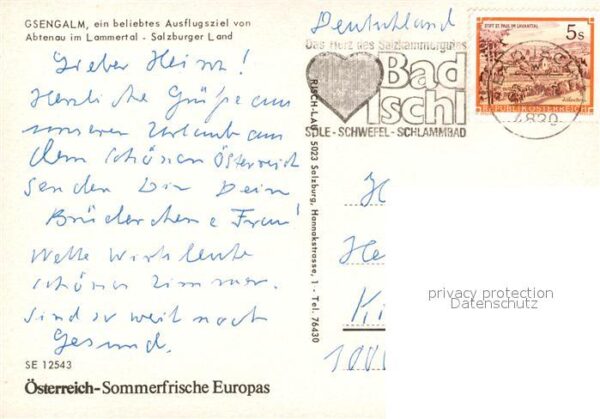 GSENGALM, ein beliebtes Ausflugsziel von
Abtenau im Lammertal - Salzburger Land
Lieber Heinz!
Herzliche Grüße aus
unseren Urlaub aus
dem schönen Österreich
senden Dir Dein
Brüderchen & Frau!
schönes Zimmer.
Sind so weit noch
Gesund.
SE 12543
Österreich-Sommerfrische Europas
RISCH-LAU, 5023 Salzburg, Hannakstrasse, 1 - Tel. 76430
Deutschland
Das Herz des Salzkammergutes
Bad
Ischl
SOLE - SCHWEFEL - SCHLAMMBAD
STIFT ST. PAUL IM LAVANTTAL
5s
REPUBLIK ÖSTERREICH
4820
H
He
Ki
1000
privacy protection
Datenschutz